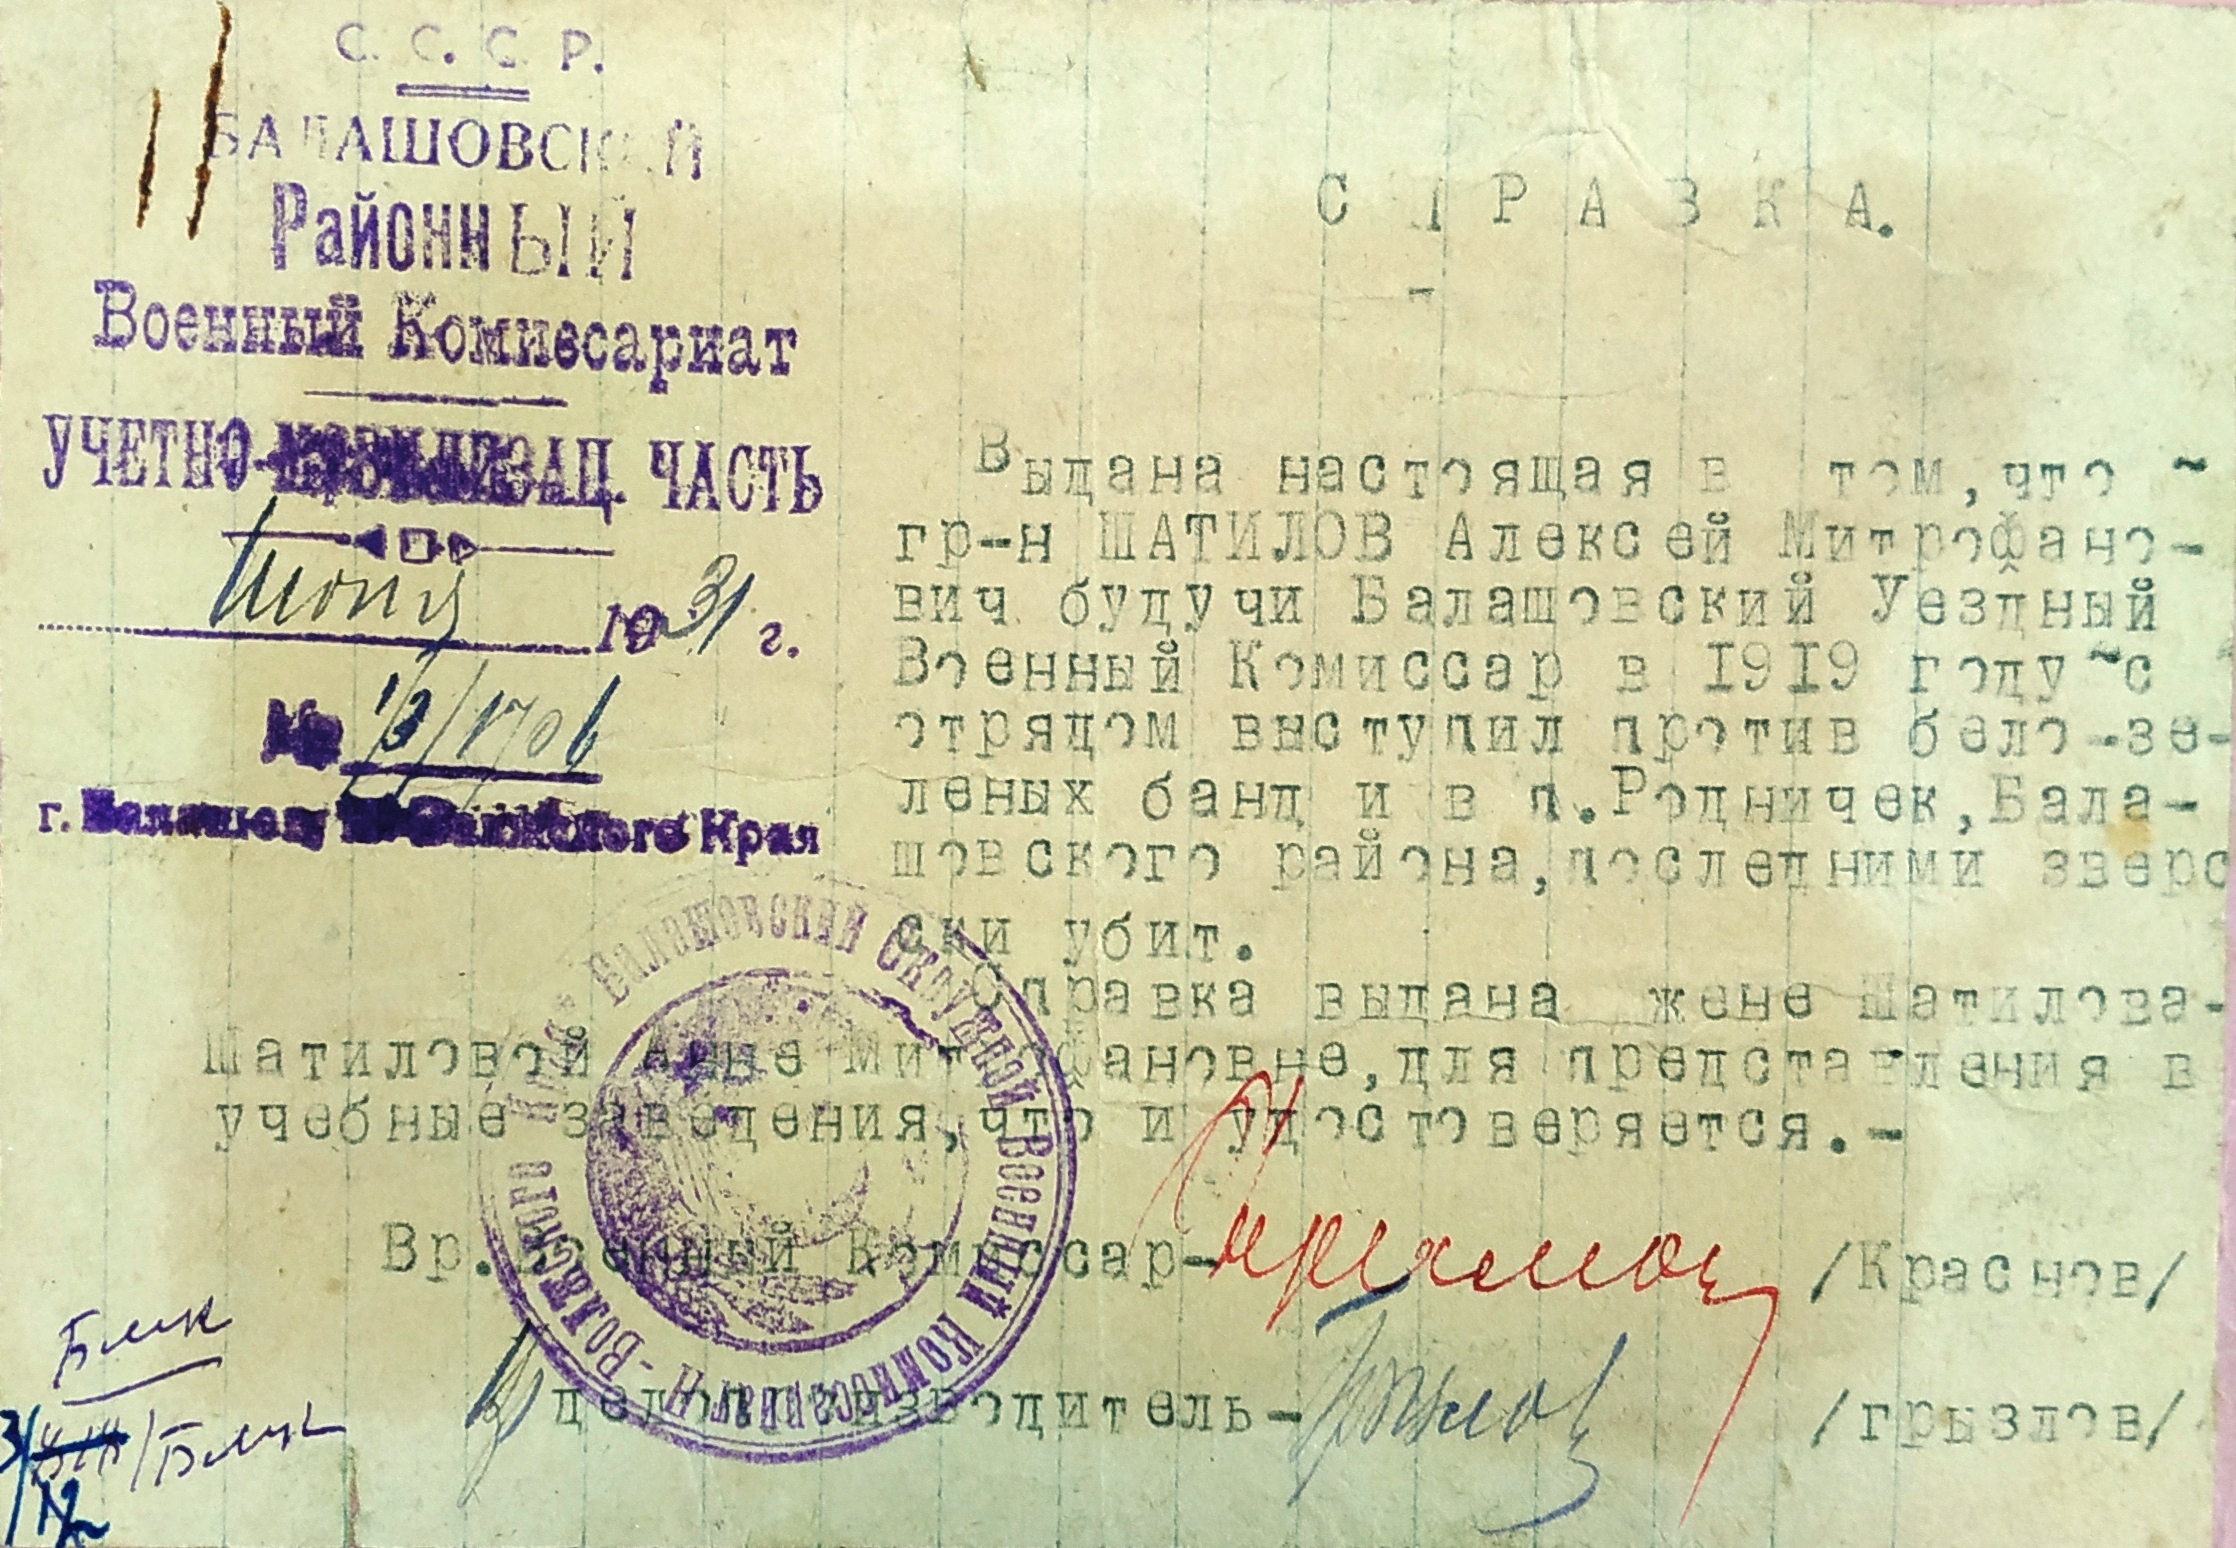 С. С. С. Р.
БАЛАШОВСКИЙ
Районный
Военный Комиссариат
УЧЕТНО-МОБИЛИЗАЦ. ЧАСТЬ
Июня 1931 г.
№ 13/1706
г. Балашов, Н-Волжского Края
СПРАВКА.
Выдана настоящая в том, что ~
гр-н ШАТИЛОВ Алексей Митрофано-
вич будучи Балашовский Уездный
Военный Комиссар в 1919 году ~с
отрядом выступил против бело-зе-
леных банд и в п.Родничек, Бала-
шовского района, последними зверс
ски убит.
Справка выдана жене Шатилова-
Шатиловой Анне Митрофановне, для представления в
учебные заведения, что и удостоверяется.-
Вр.Военный Комиссар- /Краснов/
Делопроизводитель- /грызлов/
Балашовский Окружной Военный Комиссариат Н-Волжского Края